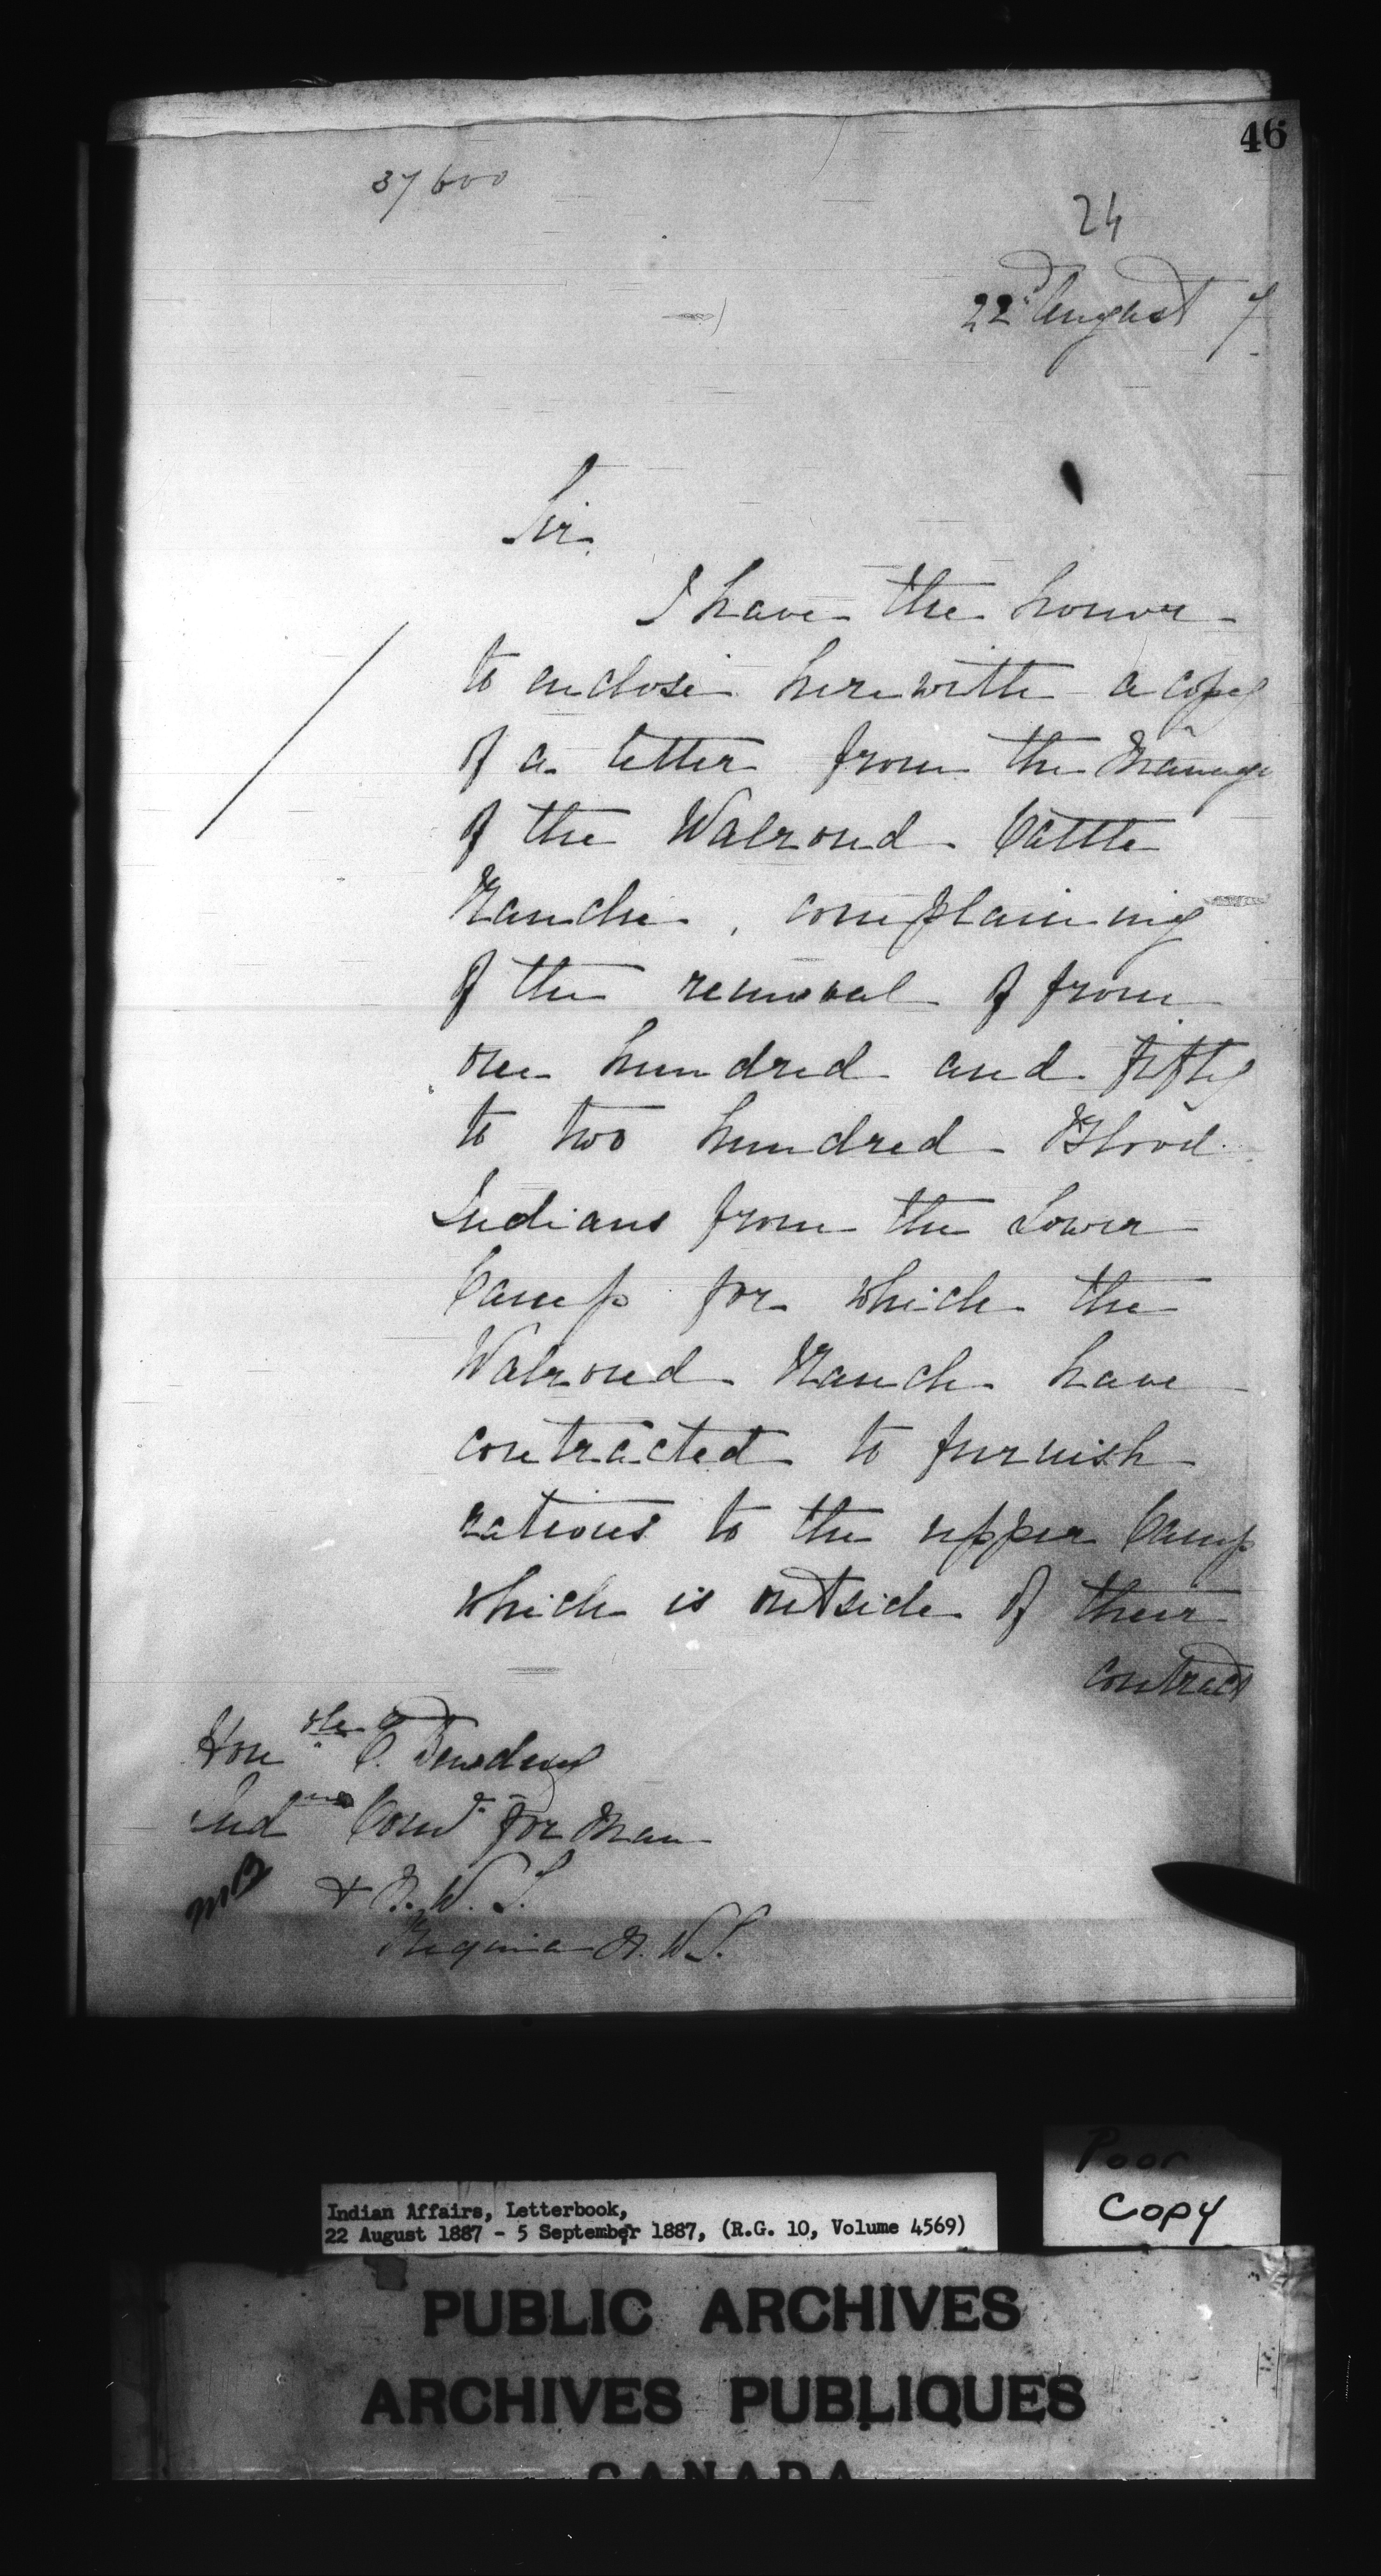 46
37600
24
22nd August 7
Sir,
I have the honor
to enclose herewith a copy
of a letter from the Manager
of the Walrond Cattle
Ranche, complaining
of the removal of from
one hundred and fifty
to two hundred Blood
Indians from the Lower
Camp for which the
Walrond Ranch have
contracted to furnish
rations to the upper Camp
which is outside of their
contract
Honble E. Dewdney
Indn Comr for Man
& N. W. T.
Regina N. W. T.
MB
Poor
Copy
Indian Affairs, Letterbook,
22 August 1887 - 5 September 1887, (R.G. 10, Volume 4569)
PUBLIC ARCHIVES
ARCHIVES PUBLIQUES
CANADA